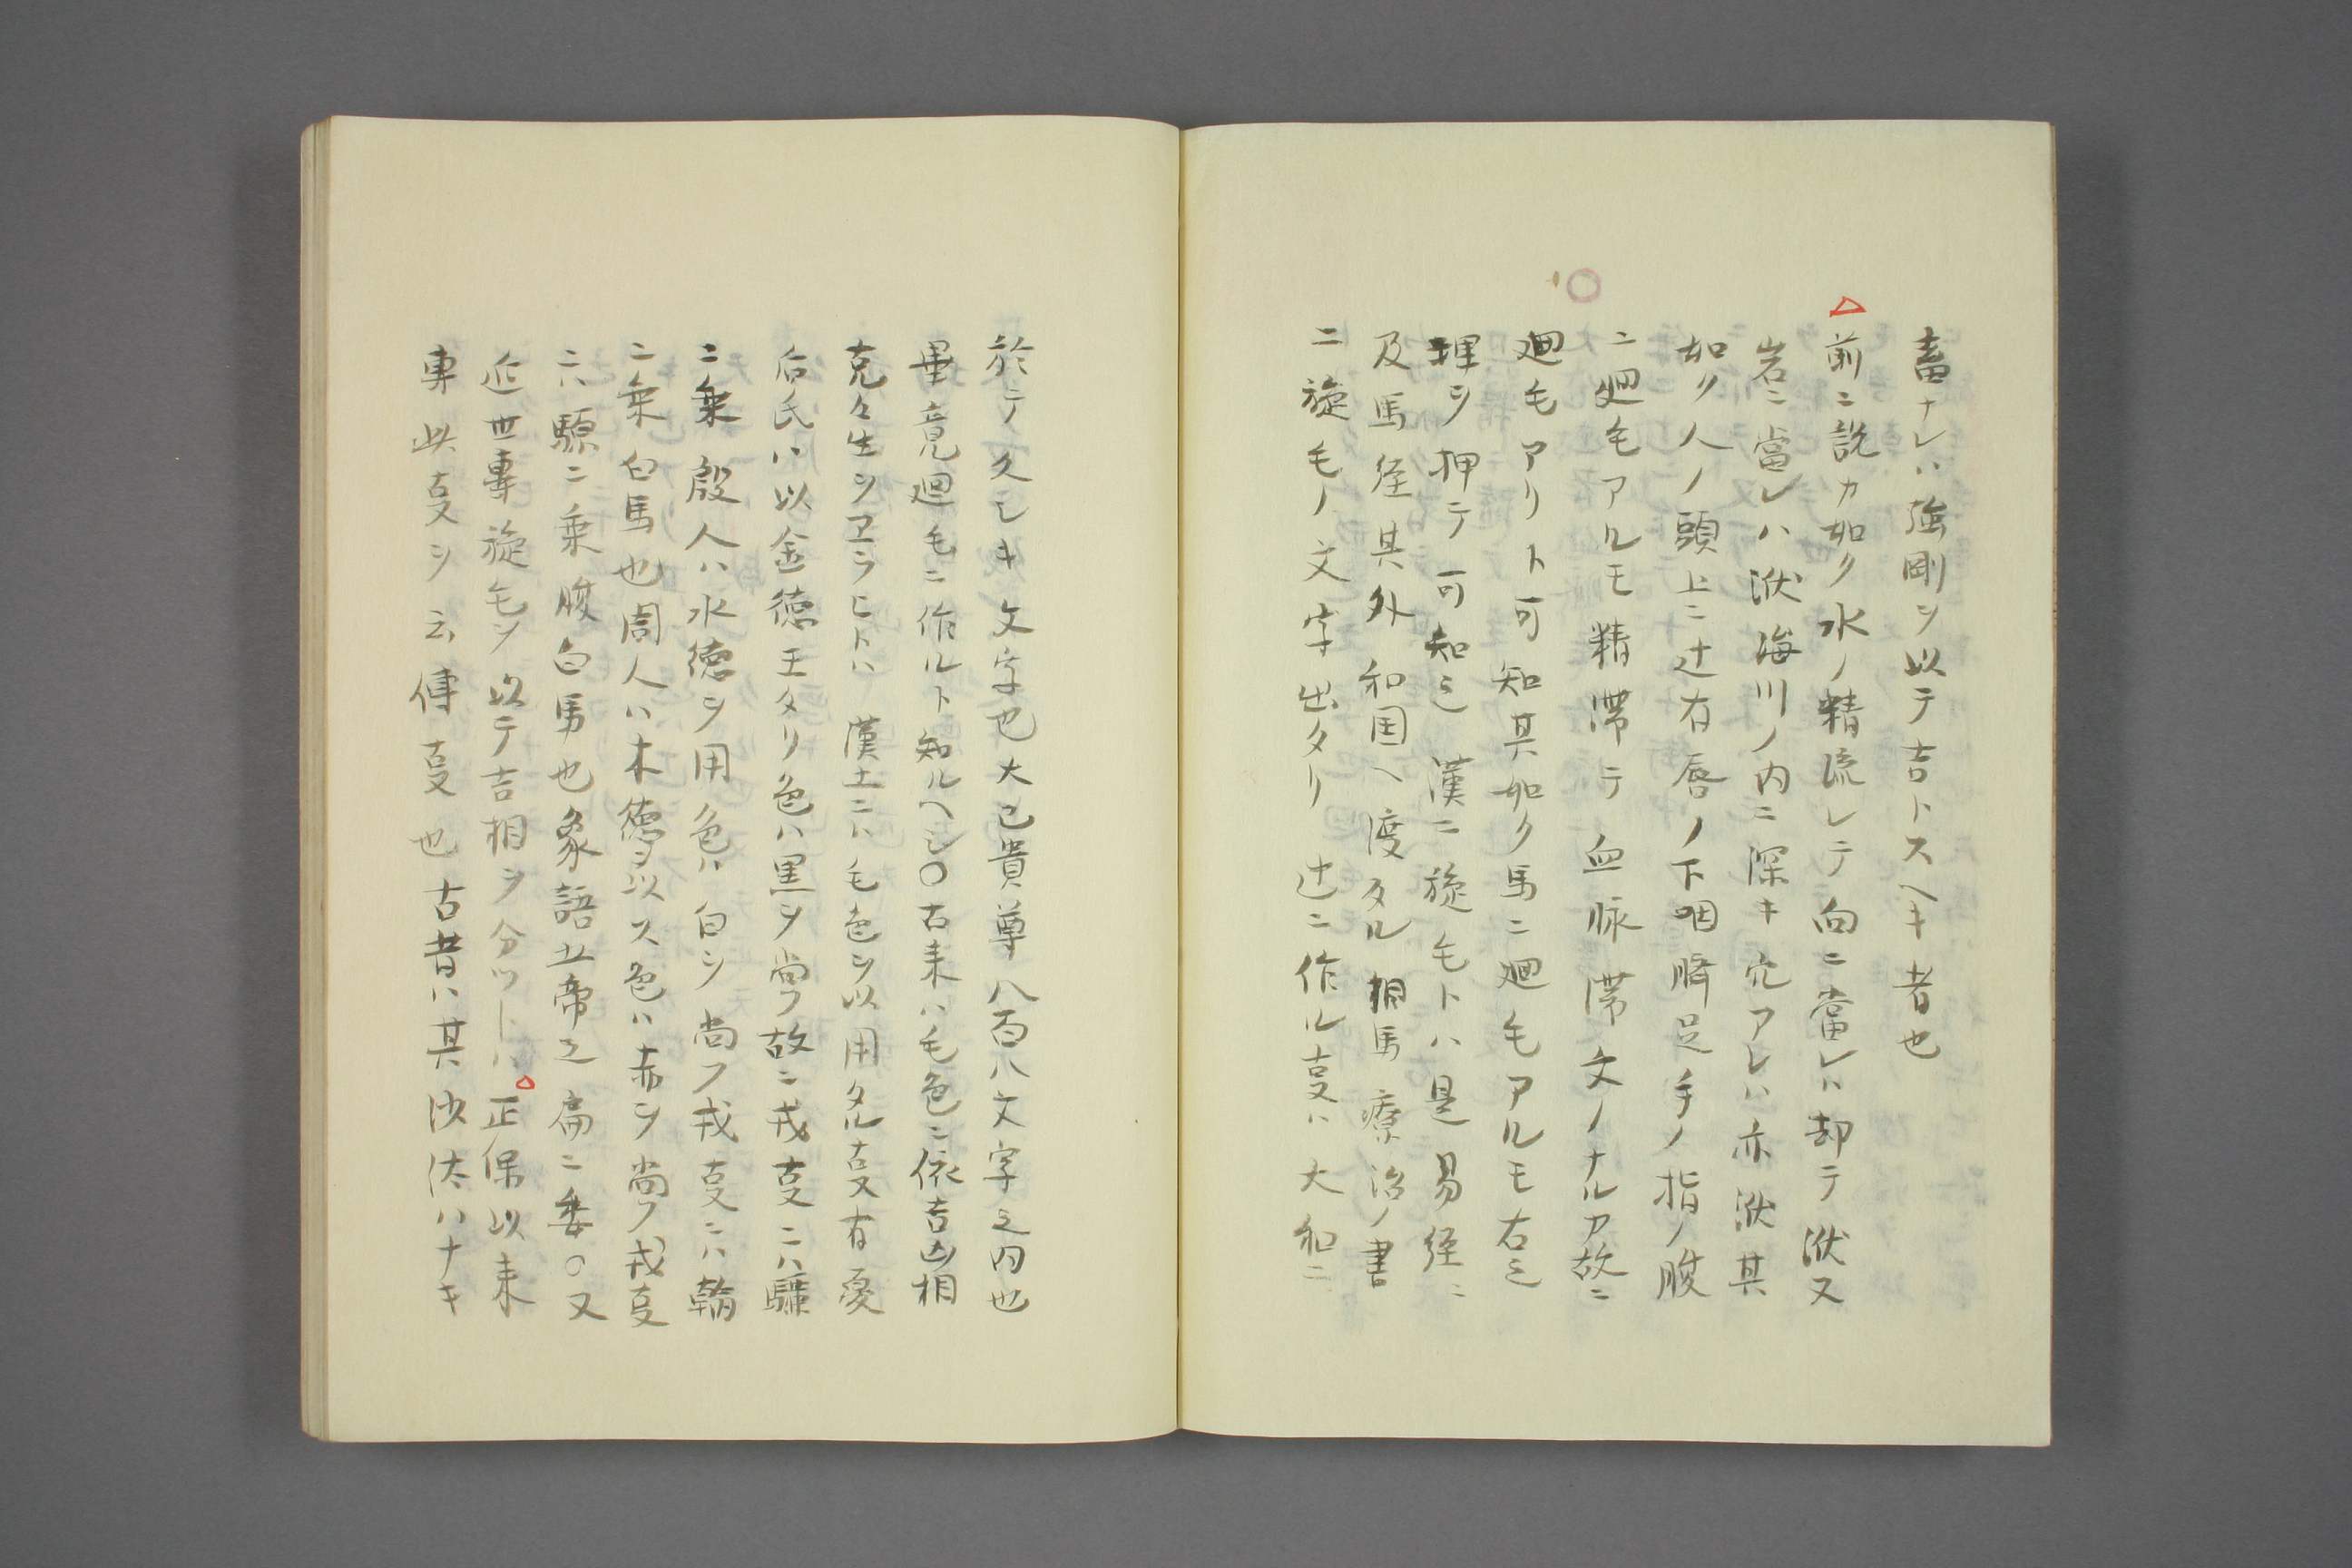 畜ナレハ強剛ヲ以テ吉トスヘキ者也
前ニ説カ如ク水ノ精流レテ向ニ當レハ却テ洑又
岩ニ當レハ洑海川ノ内ニ深キ穴アレハ亦洑其
如ク人ノ頭上ニ辻有唇ノ下咽臍足手ノ指ノ腹
ニ廻毛アルモ精滞テ血脉滞文ノナルア故ニ
廻毛アリト可知其如ク馬ニ廻毛アルモ右之
理ヲ押テ可知之漢ニ旋毛トハ是易経ニ
及馬経其外和国ヘ渡タル相馬療治ノ書
ニ旋毛ノ文字出タリ辻ニ作ル㕝ハ大和ニ
於テ久シキ文字也大已貴尊八百八文字之内也
畢竟廻毛ニ作ルト知ルヘシ〇古来ハ毛色ニ依吉凶相
克々生ヲヱラヒトハ漢土ニハ毛色ヲ以用タル㕝有夏
后氏ハ以金徳王タリ色ハ黒ヲ尚フ故ニ戎㕝ニハ驪
ニ乗殷人ハ水徳ヲ用色ハ白ヲ尚フ戎㕝ニハ翰
ニ乗白馬也周人ハ木徳ヲ以ス色ハ赤ヲ尚フ戎㕝
ニハ騵ニ乗腹白馬也象語五帝之扁ニ委〇又
近世専旋毛ヲ以テ吉相ヲ分ツトハ正保以来
専此㕝ヲ云傳㕝也古昔ハ其沙汰ハナキ